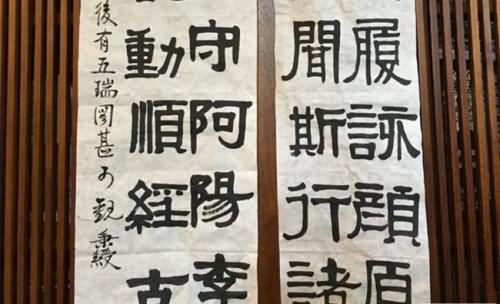 履詠顏原
聞斯行諸
守阿陽李
動順經古
後有五瑞圖甚可觀 秉綬